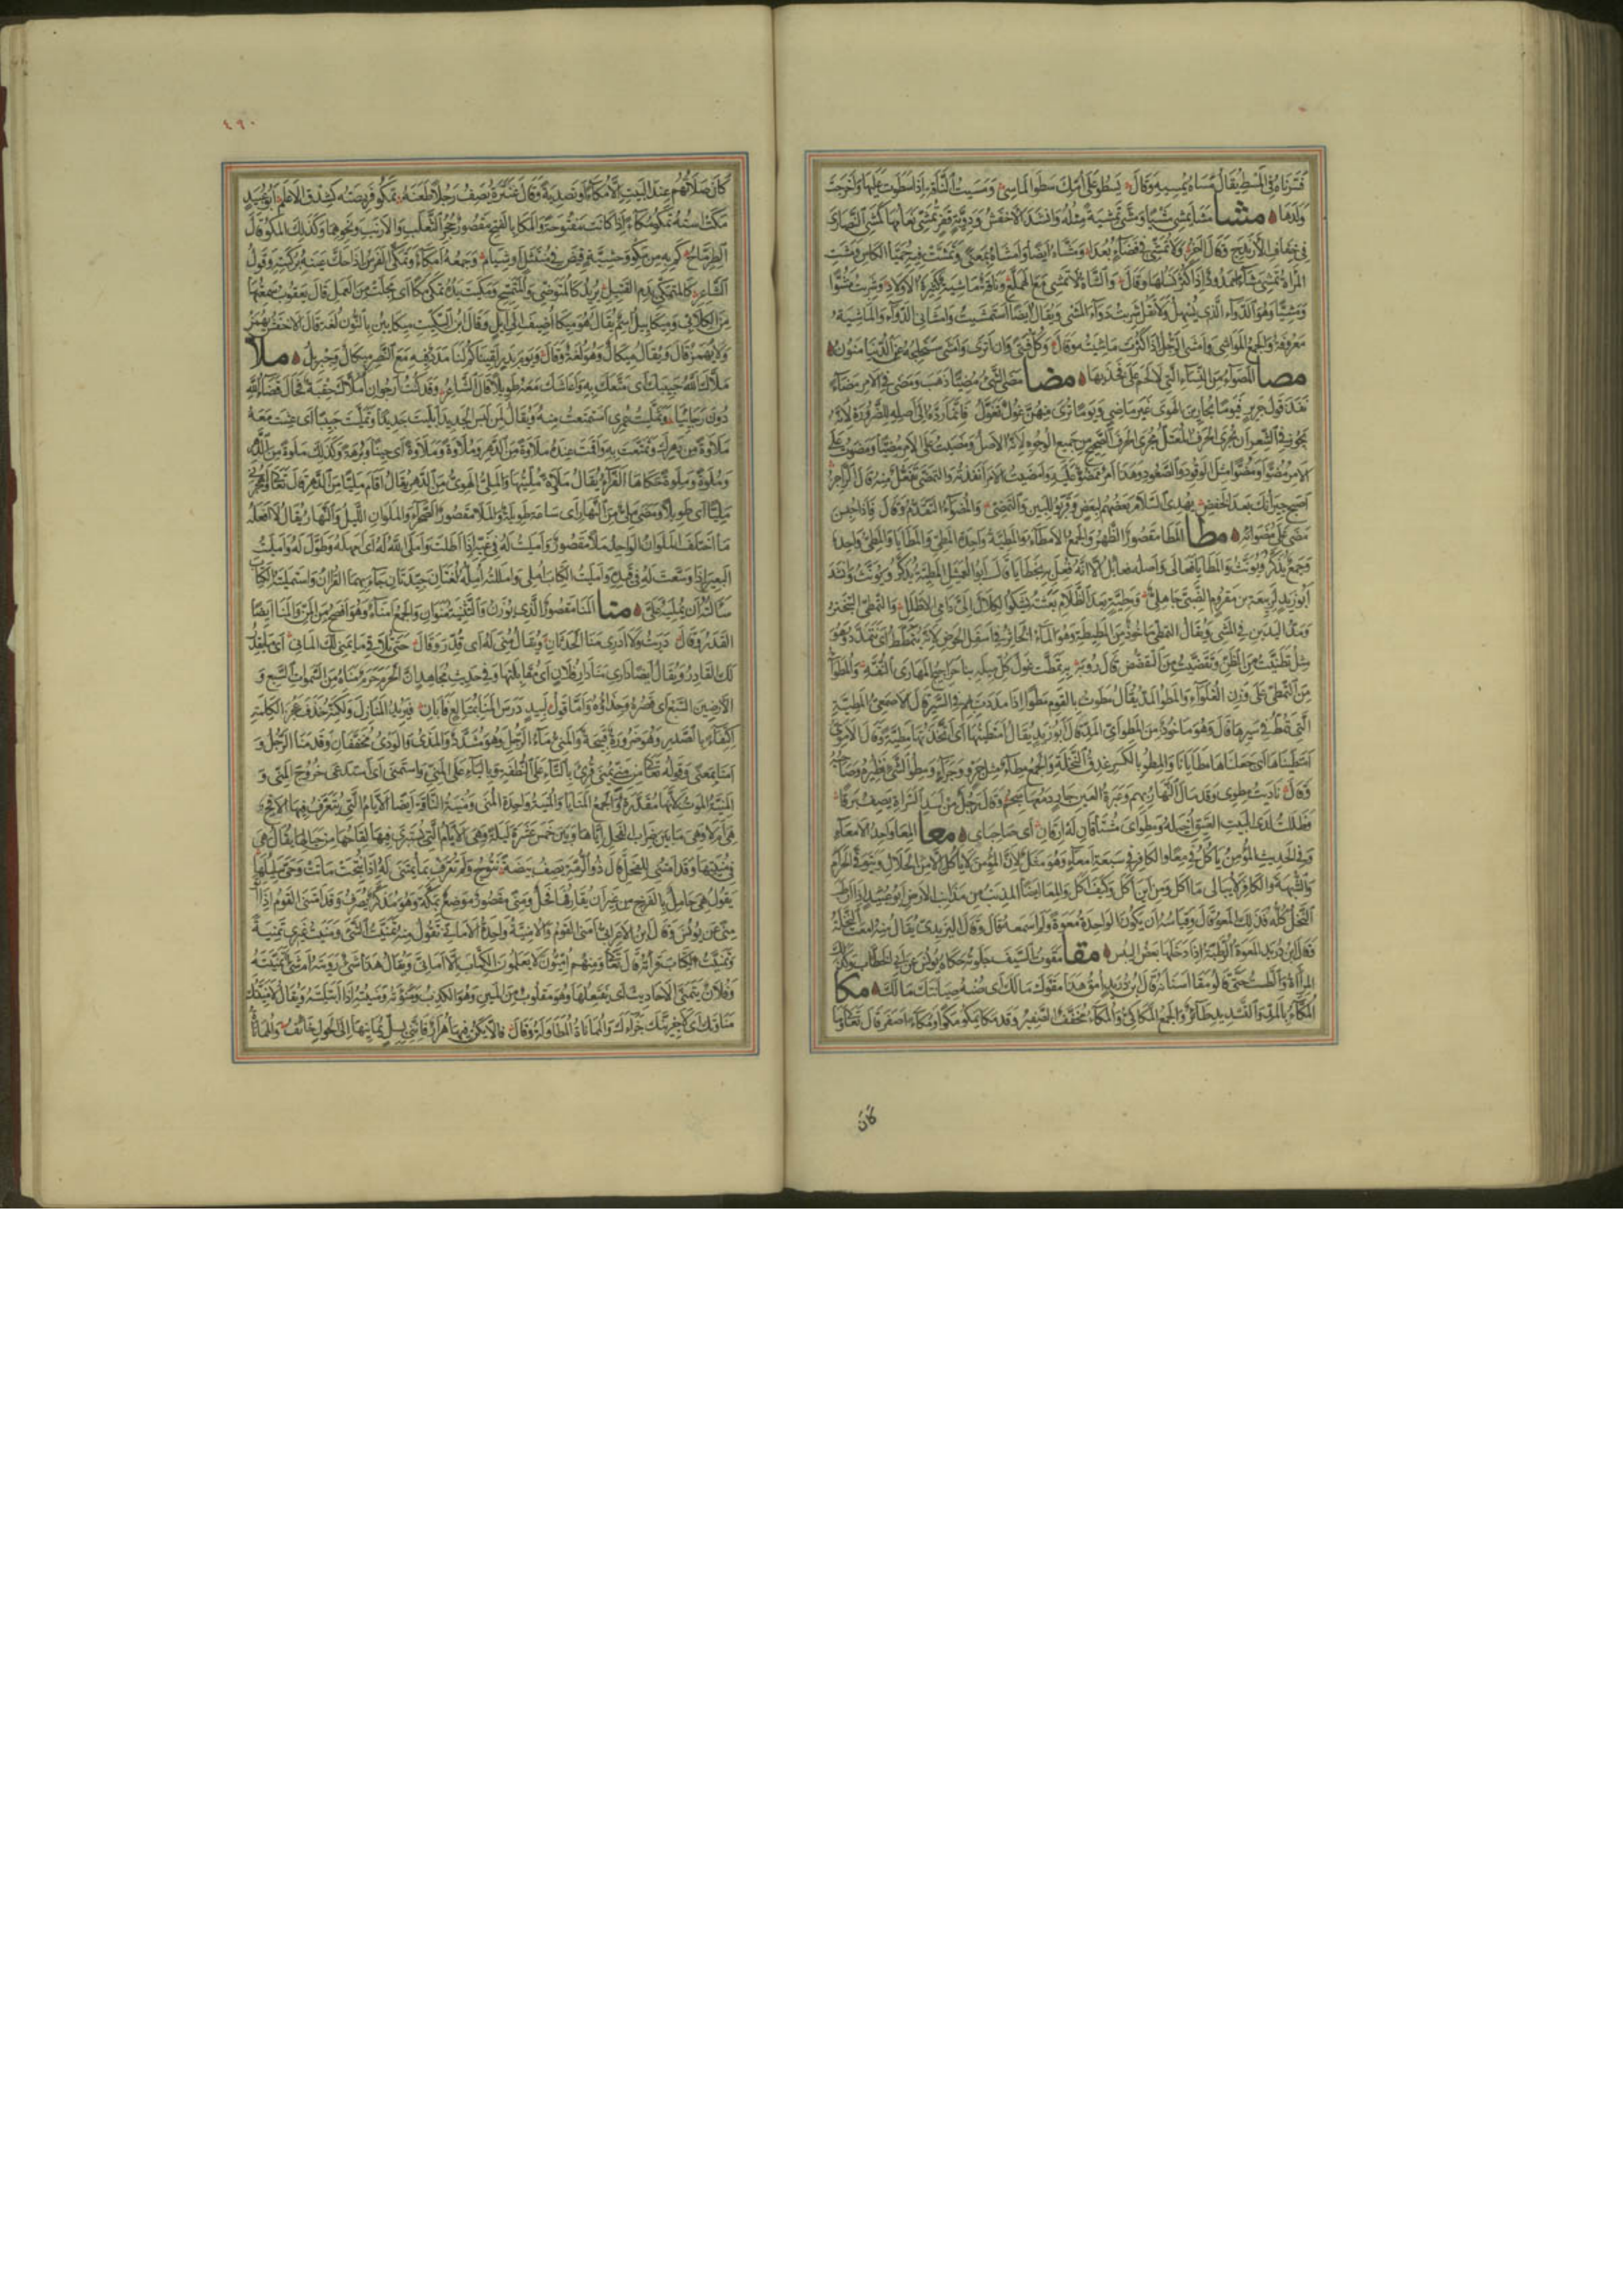 ولدها ٥ مشا مشى يمشى مشيا ومشى تمشية مثله وانشد الاخفش ودوية قفر تمشى نعامها كمشى النصارى
فى خفاف الارندج وقال اخر ولا تمشى فى فضاء بعدا ومشاه ايضا وامشاه بمعنى وتمشت فيه حميا الكاس ومشت
المراة تمشى مشاء ممدود اذا كثر نسلها وقال والشاة لا تمشى مع الهملع وناقة ماشية كثيرة الاولاد وشربت مشوا
ومشيا وهو الدواء الذى يسهل ولا تقل شربت دواء المشى ويقال ايضا استمشيت وامشانى الدواء والماشية
معروفة والجمع المواشى وامشى الرجل اذا كثرت ماشيته وقال وكل فتى وان اثرى وامشى ستخلجه عن الدنيا منون ٥
مصا المصواء من النساء التى لا لحم على فخذيها ٥ مضا مضى الشىء مضيا ذهب ومضى فى الامر مضاء
نفذ قول جرير فيوما يجارين الهوى غير ماضى ويوما ترى منهن غول تغول فانما رده الى اصله للضرورة لانه
يجوز فى الشعر ان يجرى الحرف المعتل مجرى الحرف الصحيح من جميع الوجوه لانه الاصل ومضيت على الامر مضيا ومضوت على
الامر مضوا ومضوا مثل الوقود والصعود وهذا امر ممضو عليه وامضيت الامر انفذته والتمضى تفعل منه قال الراجز
اصبح جيرانك بعد الخفض يهدى السلام بعضهم لبعض وقربوا للبين والتمضى والمضواء التقدم وقال فاذا خنسن
مضى على مضوائه ٥ مطا المطا مقصور الظهر والجمع الامطاء والمطية واحدة المطى والمطايا والمطى واحد
وجمع يذكر ويونث والمطايا فعالى واصله فعائل الا انه فعل به ما فعل بخطايا قال ابو العميثل المطية تذكر وتونث وانشد
ابو زيد لربيعة بن مقروم الضبى جاهلى ومطية ملث الظلام بعثته يشكو الكلال الى دامى الاظلل والتمطى التبختر
ومد اليدين فى المشى ويقال التمطى ماخوذ من المطيطة وهو الماء الخاثر فى اسفل الحوض لانه يتمطط اى يتمدد وهو
مثل تظنيت من الظن وتقضيت من التقضض قال روبة به تمطت غول كل ميله بنا حراجيج المهارى النفه والمطواء
من التمطى على وزن الغلواء والمطو المد يقال مطوت بالقوم مطوا اذا مددت بهم فى السير قال الاصمعى المطية
التى تمط فى سيرها قال وهو ماخوذ من المطو اى المد قال ابو زيد يقال امتطيتها اى اتخذتها مطية وقال الاموى
امتطيناها اى جعلناها مطايانا والمطو بالكسر عذق النخلة والجمع مطاء مثل جرو وجراء ومطو الشىء نظيره وصاحبه
فظلت لدى البيت العتيق اخيله ومطواى مشتاقان له ارقان اى صاحباى ٥ معا المعا واحد الامعاء
وفى الحديث المؤمن ياكل فى معا والكافر فى سبعة امعاء وهو مثل لان المؤمن لا ياكل الا من الحلال ويتوقى الحرام
والشبهة والكافر لا يبالى ما اكل ومن اين اكل وكيف اكل والمعا ايضا المذنب من مذانب الارض ابو عبيد اذا ارطب
النخل كله فذلك المعو قال وقياسه ان يكون الواحدة معوة ولم اسمعه قال وقال اليزيدى يقال منه امعت النخلة
وقال ابن دريد المعوة الرطبة اذا دخلها بعض اليبس ٥ مقا مقوت السيف جلوته حكاه يونس عن ابى الخطاب وكذلك
المراة والطست حتى قالوا مقا اسنانه قال ابن دريد امق هذا مقوك مالك اى صنه صيانتك مالك ٥ مكا
المكاء بالمد والتشديد طائر والجمع المكاكى والمكاء مخفف الصفير وقد مكا يمكو مكوا ومكاء اصفر قال تعالى وما
كان
٤٩٠
كان صلاتهم عند البيت الا مكاء وتصدية وقال عنترة يصف رجلا طعنه تمكو فريصته كشدق الاعلم ابو عبيد
مكت استه تمكو مكاء اذا كانت مفتوحة والمكا بالفتح مقصور جحر الثعلب والارنب ونحوهما وكذلك المكو قال
الطرماح كم به من مكو وحشية قيض فى منتثل او شيام وجمعه امكاء وتمكى الفرس اذا حك عينه بركبته وقول
الشاعر كالمتمكى بدم القتيل يريد كالمتوضى والمتمسح ومكيت يده تمكى مكا اى مجلت من العمل قال يعقوب سمعتها
من الكلابى وميكائيل اسم يقال هو ميكا اضيف الى ايل وقال ابن السكيت ميكائين بالنون لغة قال الاخفش يهمز
ولا يهمز قال ويقال ميكال وهو لغة وقال ويوم بدر لقيناكم لنا مدد فيه مع النصر ميكال وجبريل ٥ ملا
ملاك الله حبيبك اى متعك به واعاشك معه طويلا قال الشاعر وقد كنت ارجو ان املاك حقبة فحال قضاء الله
دون رجائيا وتمليت عمرى استمتعت منه ويقال لمن لبس الجديد ابليت جديدا وتمليت حبيبا اى عشت معه
ملاوة من دهرك وتمتعت به واقمت عنده ملاوة من الدهر وملاوة وملاوة اى حينا وبرهة وكذلك ملوة من الدهر
وملوة وملوة حكاها الفراء يقال ملاك الله مليتها والملى الهوى من الدهر يقال اقام مليا من الدهر قال تعالى واهجرنى
مليا اى طويلا ومضى ملى من النهار اى ساعة طويلة والملا مقصور الصحراء والملوان الليل والنهار يقال لا افعله
ما اختلف الملوان الواحد ملا مقصور وامليت له فى غيه اذا اطلت واملى الله له اى امهله وطول له وامليت
البعير اذا وسعت له فى قيده وامليت الكتاب املى واملته امله لغتان جيدتان جاء بهما القرآن واستمليته الكتاب
سالته ان يمليه على ٥ منا المنا مقصور الذى يوزن به والتثنية منوان والجمع امناء وهو افصح من المن والمنا ايضا
القدر وقال دريت ولا ادرى منا الحدثان ويقال منى له اى قدر وقال حتى تلاقى ما يمنى لك المانى اى يقدر
لك القادر ويقال ايضا دارى منا دار فلان اى مقابلتها وفى حديث مجاهد ان الحرم حرم مناه من السموات السبع و
الارضين السبع اى قصده وحذاؤه واما قول لبيد درس المنا بمتالع فابان فيريد المنازل ولكنه حذف عجز الكلمة
اكتفاء بالصدر وهو ضرورة قبيحة والمنى ماء الرجل وهو مشدد والمذى والودى مخففان وقد منا الرجل و
امنا بمعنى وقوله تعالى من منى يمنى قرئ بالتاء على النطفة وبالياء على المنى واستمنى اى استدعى خروج المنى و
المنية الموت لانها مقدرة والجمع المنايا والمنية واحدة المنى ومنية الناقة ايضا الايام التى يتعرف فيها الاقح
هى ام لا وهى ما بين ضراب الفحل اياها وبين خمس عشرة ليلة وهى الايام التى يستبرى فيها لقاحها من حيالها يقال هى
فى منيتها وقد امتنى للفحل قال ذو الرمة يصف بيضة نتوج ولم تقرف بما يمتنى له اذا نتجت ماتت وحى سليلها
يقول هى حامل بالفرخ من غير ان يقارفها فحل ومنى مقصور موضع بمكة وهو مذكر يصرف وقد امتنى القوم اذا اتوا
منى عن يونس وقال ابن الاعرابى امنى القوم والامنية واحدة الامانى تقول منه تمنيت الشىء ومنيت غيرى تمنية
وتمنيت الكتاب قراته قال تعالى ومنهم اميون لا يعلمون الكتاب الا امانى ويقال هذا شىء رويته ام شىء تمنيته
وفلان يتمنى الاحاديث اى يفتعلها وهو مقلوب من المين وهو الكذب ومنوته ومنيته اذا ابتليته ويقال لامنينك
مناوتك اى لاجزينك جزاءك والمماناة المطاولة وقال فان لا يكن فيها هرار فاننى بسل يمانيها الى الحول خائف والمماناة